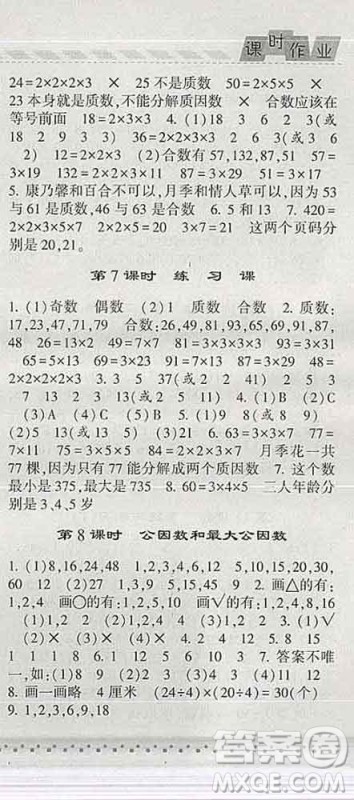 课时作业
24=2×2×2×3　×　25 不是质数　50=2×5×5　×
23 本身就是质数,不能分解质因数　×　合数应该在
等号前面　18=2×3×3　4. (1)2　3　1　3(或
18　2　9　3　3)　36=2×2×3×3　(2)2　3　1(或 6
2)　12=2×2×3　(2)合数有 57,132,87,51　57=
3×19　132=2×2×3×11　87=3×29　51=3×17
5. 康乃馨和百合不可以,月季和情人草可以,因为 53
与 61 是质数,51 与 93 是合数　6. 5 和 13　7. 420=
2×2×3×5×7=20×21　这两个页码分
别是 20,21。
第 7 课时　练　习　课
1. (1)奇数　偶数　(2)1　质数　合数　2. 质数:
17,23,47,71,79　合数:26,49,81,93,65,91,51,87,
48　26=13×2　49=7×7　81=3×3×3×3　93=3×31
65=13×5　91=7×13　51=3×17　87=3×29　48=
2×2×2×2×3　3. 3　5　13　17　5　17(或 2　3　5
7　13　2　3　13)　4. (1)B　(2)C　(3)A　(4)B
5. (2)○　(4)○　66=2×3×11　75=3×5×5　77=
7×11　225=3×3×5×5　月季花一共
77 棵,因为只有 77 能分解成两个质因数　7. 这个数
最小是 375,735　8. 60=3×4×5　三人年龄分
别是 3、4、5 岁
第 8 课时　公因数和最大公因数
1. (1)8,16,24,48　1,2,3,6,9,18　5,10,15,20,30,
60　12　(2)27　(3)24　(4)8　2. 画△的有:
1,2,4　画○的有:1,2,5,10　画○的有:1,2,4,8,16
(1)1,2　(2)1,2,4　(3)1,2　3. (1)√
(2)√　(3)×　(4)√　4. C　B　5. 2　8　15
1　1　1　8　6. <　=　>　<　>　7. 答案不唯
一,如:(1)8　(2)9　(3)2　(4)6　(5)6　(6)9
8. 画一画略　4 厘米　(24÷4)×(20÷4)=30(个)
9. 1,2,3,6,9,18